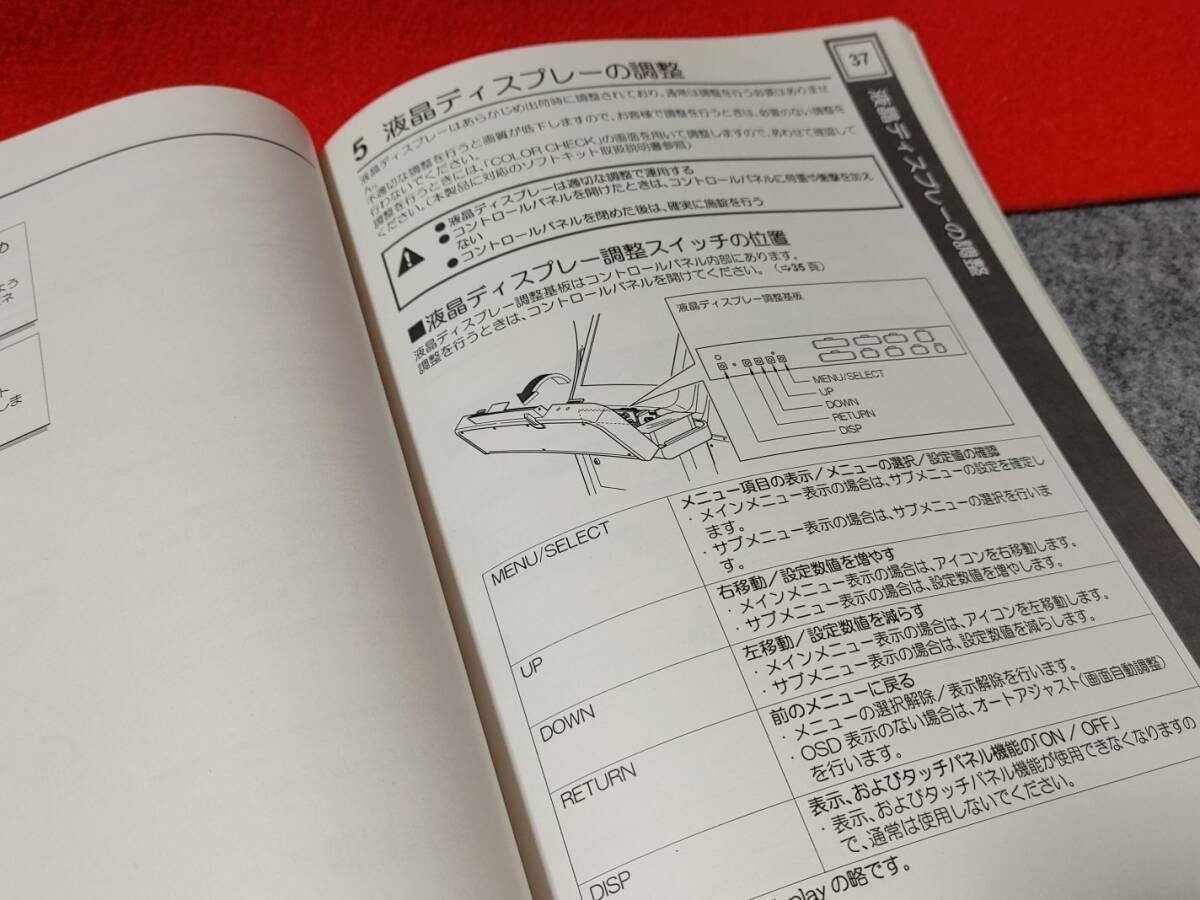 め
よう
ネ
ト
しま
37
液晶ディスプレーの調整
5 液晶ディスプレーの調整
液晶ディスプレーはあらかじめ出荷時に調整されており、通常は調整を行う必要はありませ
ん。
不適切な調整を行うと画質が低下しますので、お客様で調整を行うときは、必要のない調整を
行わないでください。
調整を行うときには、「COLOR CHECK」の画面を用いて調整しますので、あわせて確認して
ください。(本製品に対応のソフトキット取扱説明書参照)
●液晶ディスプレーは適切な調整で運用する
●コントロールパネルを開けたときは、コントロールパネルに荷重や衝撃を加え
ない
●コントロールパネルを閉めた後は、確実に施錠を行う
■液晶ディスプレー調整スイッチの位置
液晶ディスプレー調整基板はコントロールパネル内部にあります。
調整を行うときは、コントロールパネルを開けてください。(⇨35頁)
液晶ディスプレー調整基板
MENU/SELECT
UP
DOWN
RETURN
DISP
MENU/SELECT
メニュー項目の表示/メニューの選択/設定値の確認
・メインメニュー表示の場合は、サブメニューの設定を確定し
ます。
・サブメニュー表示の場合は、サブメニューの選択を行いま
す。
UP
右移動/設定数値を増やす
・メインメニュー表示の場合は、アイコンを右移動します。
・サブメニュー表示の場合は、設定数値を増やします。
DOWN
左移動/設定数値を減らす
・メインメニュー表示の場合は、アイコンを左移動します。
・サブメニュー表示の場合は、設定数値を減らします。
RETURN
前のメニューに戻る
・メニューの選択解除/表示解除を行います。
・OSD表示のない場合は、オートアジャスト(画面自動調整)
を行います。
DISP
表示、およびタッチパネル機能の「ON / OFF」
・表示、およびタッチパネル機能が使用できなくなりますの
で、通常は使用しないでください。
playの略です。